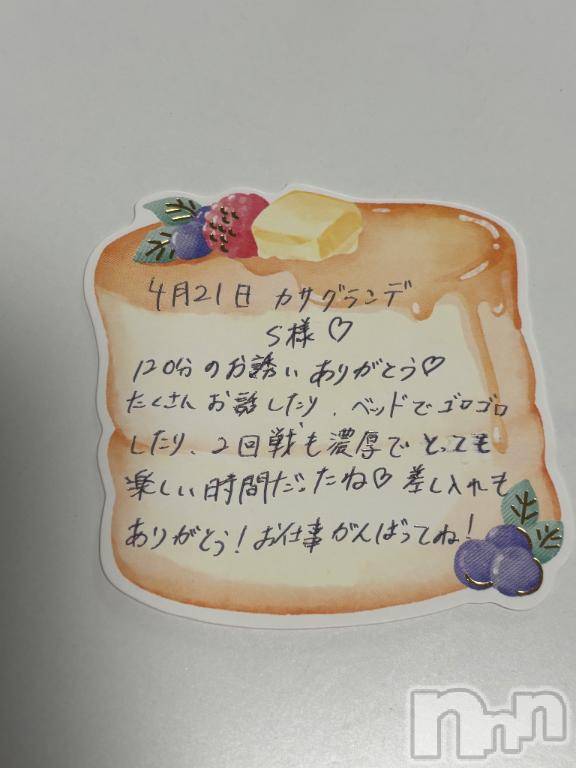 4月21日 カサグランデ
S様♡
120分のお誘いありがとう♡
たくさんお話したり、ベッドでゴロゴロ
したり、2回戦も濃厚でとっても
楽しい時間だったね♡差し入れも
ありがとう!お仕事がんばってね!
nnn